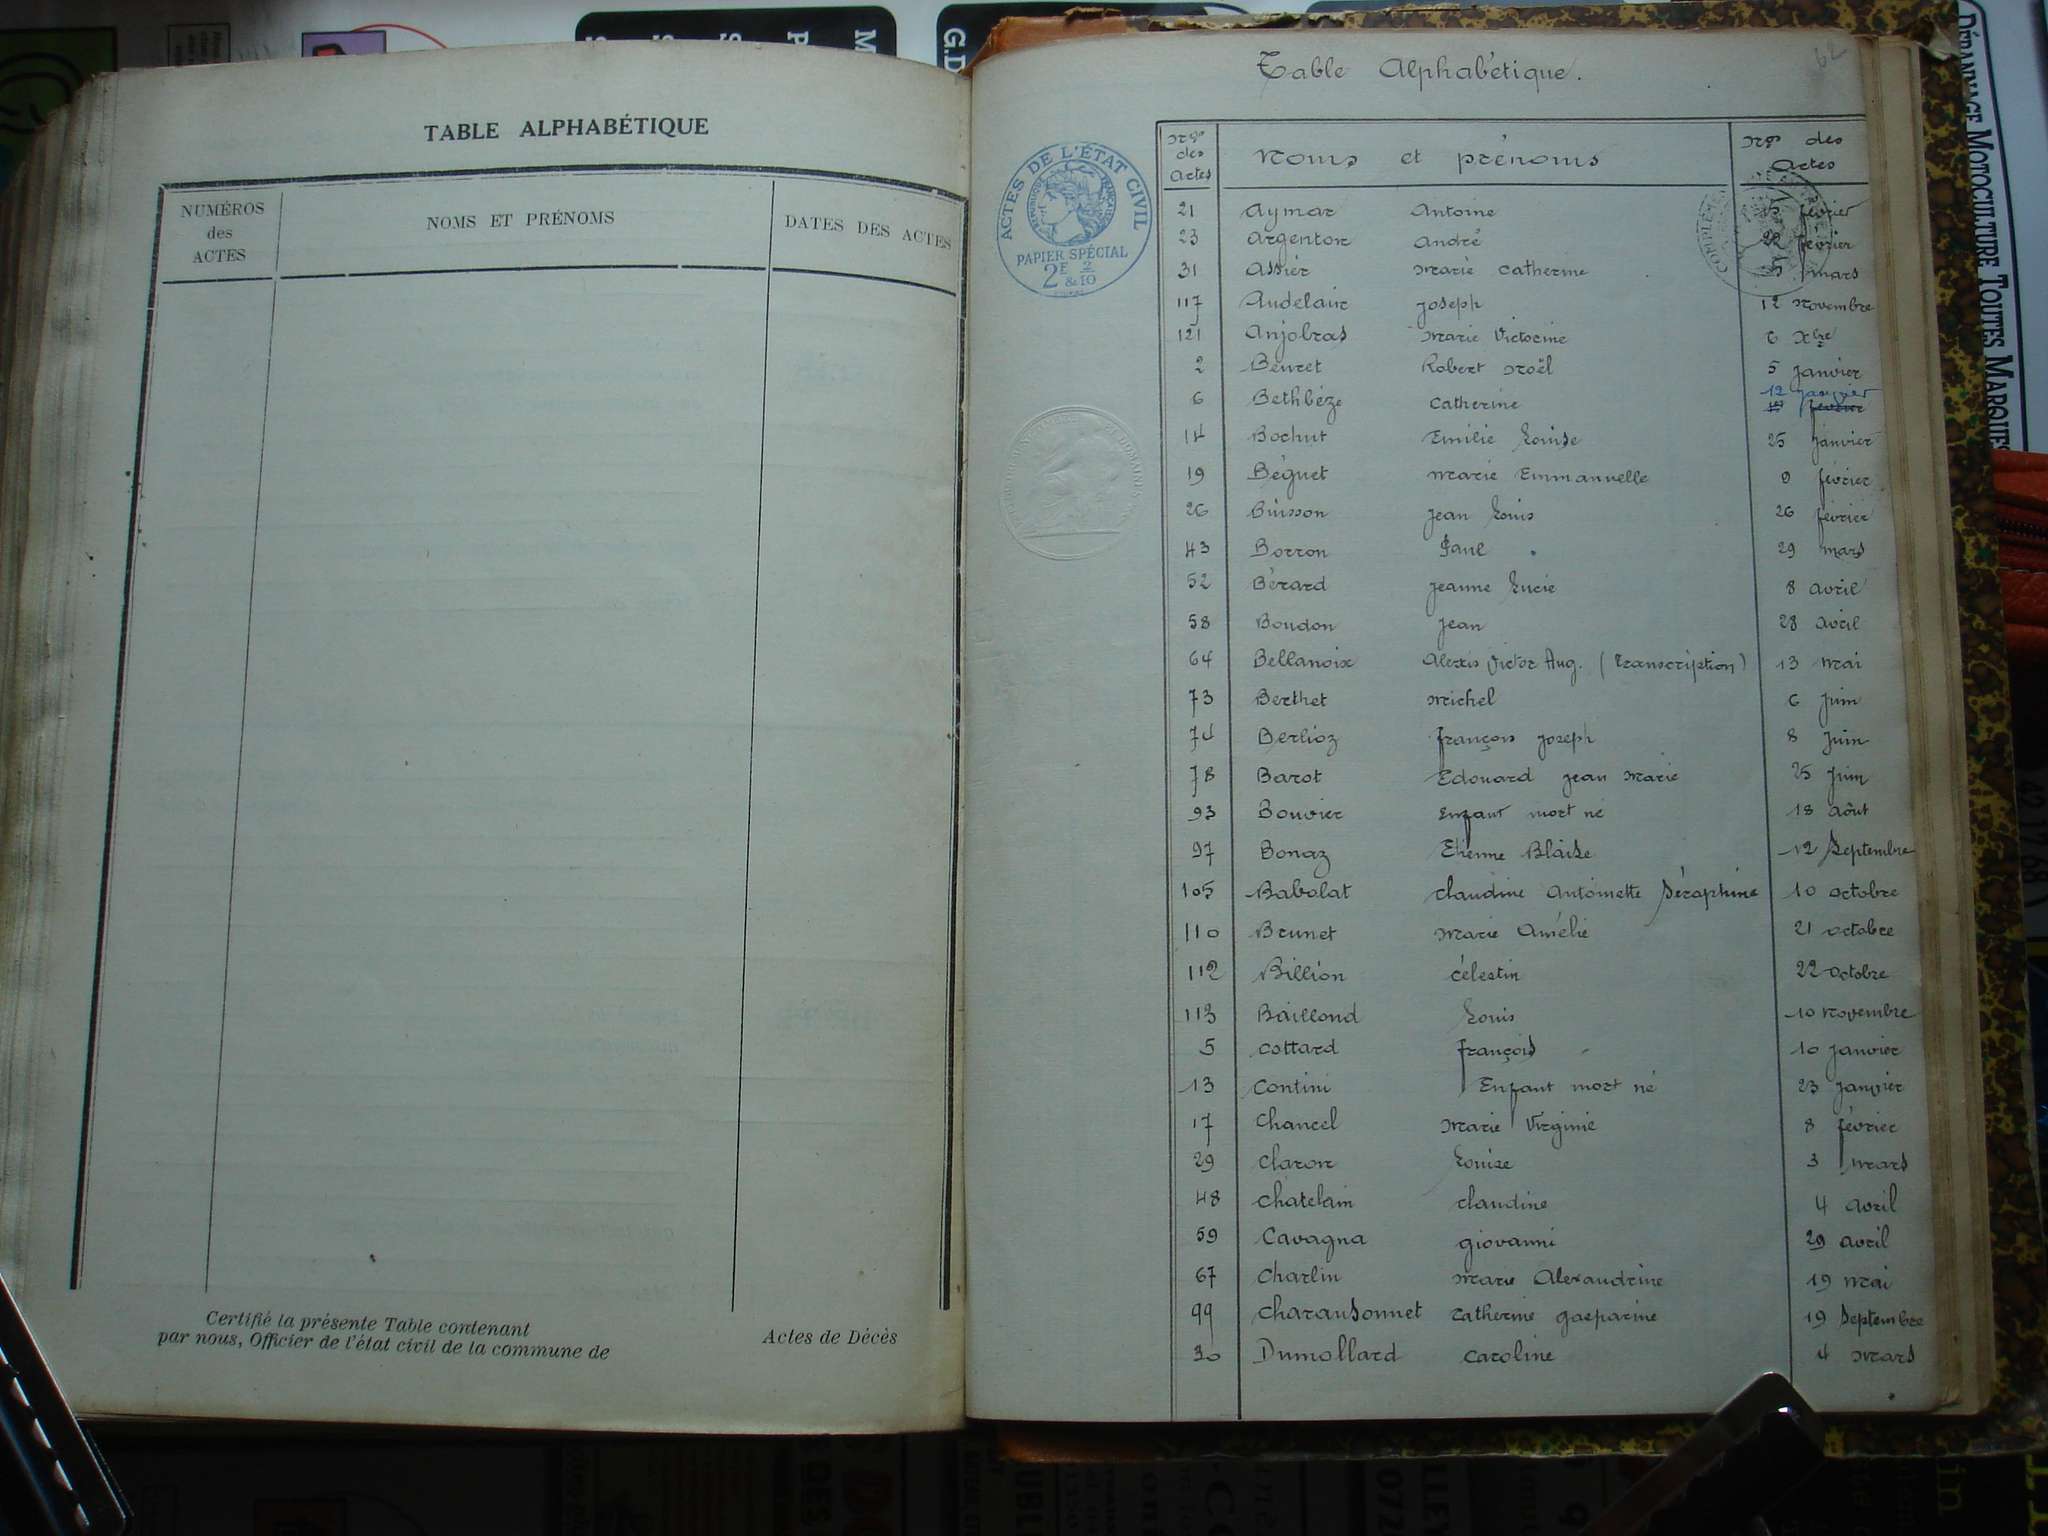 TABLE ALPHABÉTIQUE
NUMÉROS
des
ACTES
NOMS ET PRÉNOMS
DATES DES ACTES
Certifié la présente Table contenant
par nous, Officier de l'état civil de la commune de
Actes de Décès
62
Table Alphabétique.
ACTES DE L'ÉTAT CIVIL
RÉPUBLIQUE FRANÇAISE
PAPIER SPÉCIAL
2E 2
& 10
Nos des Actes Noms et prénoms Nos des Actes
21 Aymar Antoine 15 février
23 Argenton André 22 février
31 Assier Marie Catherine 5 mars
117 Audelair Joseph 12 Novembre
121 Anjobras Marie Victorine 6 Xbre
2 Beuret Robert Noël 5 Janvier
6 Bethbéze Catherine 12 janvier
14 Bochut Emilie Louise 25 Janvier
19 Béguet Marie Emmanuelle 9 février
26 Buisson Jean Louis 26 février
43 Borron Paul 29 mars
52 Bérard Jeanne Lucie 8 avril
58 Boudon Jean 28 avril
64 Bellanoix Alexis Victor Aug. (Transcription) 13 Mai
73 Berthet Michel 6 Juin
74 Berlioz François Joseph 8 Juin
78 Barot Edouard Jean Marie 25 Juin
93 Bouvier Enfant mort né 18 Août
97 Bonaz Etienne Blaise 12 Septembre
105 Babolat Claudine Antoinette Séraphine 10 octobre
110 Brunet Marie Amélie 21 octobre
112 Billion Célestin 22 octobre
113 Baillond Louis 10 Novembre
5 Cottard François 10 Janvier
13 Contini Enfant mort né 23 Janvier
17 Chancel Marie Virginie 8 février
29 Claron Louise 3 Mars
48 Chatelain Claudine 4 avril
59 Cavagna Giovanni 29 avril
67 Charlin Marie Alexandrine 19 Mai
99 Charansonnet Catherine Gasparine 19 Septembre
30 Dumollard Caroline 4 Mars
DÉPANNAGE MOTOCULTURE TOUTES MARQUES